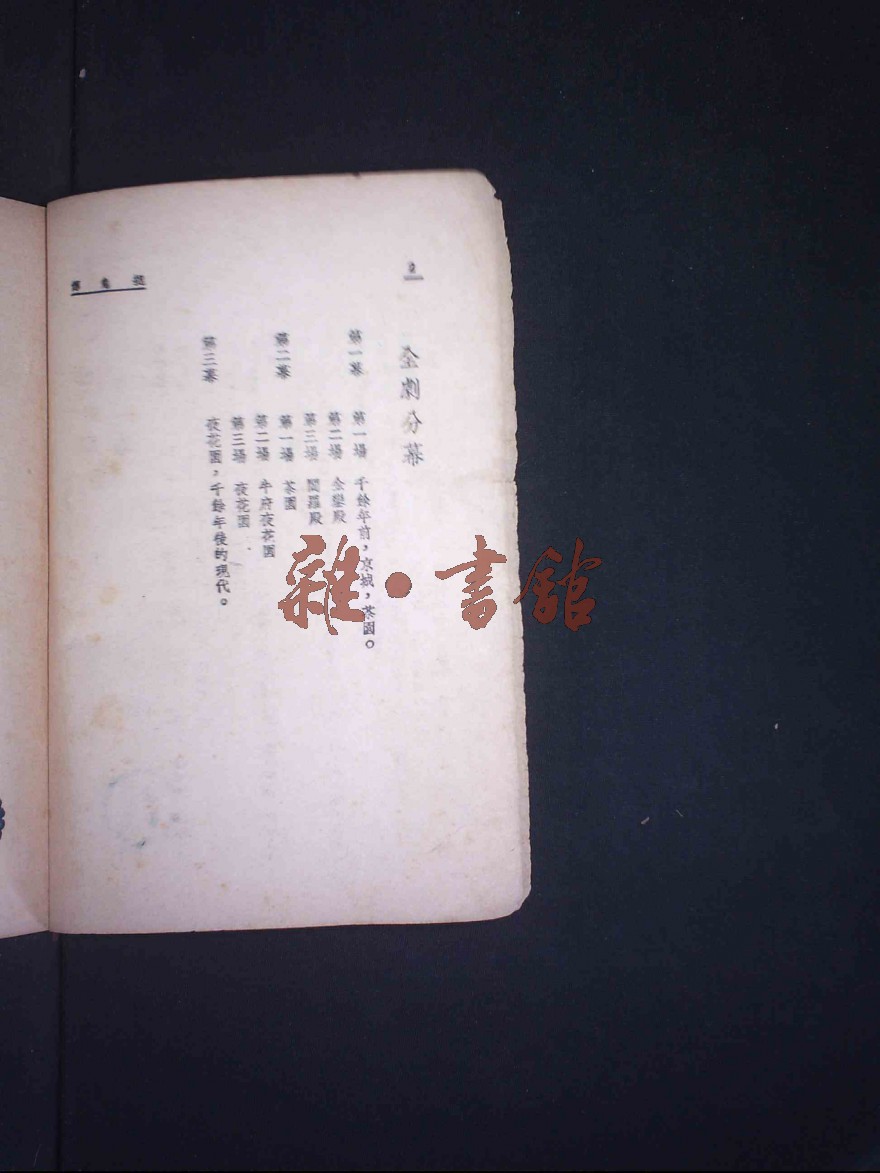 2
捉鬼傳
全劇分幕
第一幕　第一場　千餘年前，京城，茶園。
第二場　金鑾殿
第三場　閻羅殿
第二幕　第一場　茶園
第二場　牛府夜花園
第三場　夜花園
第三幕　夜花園，千餘年後的現代。
雜·書館